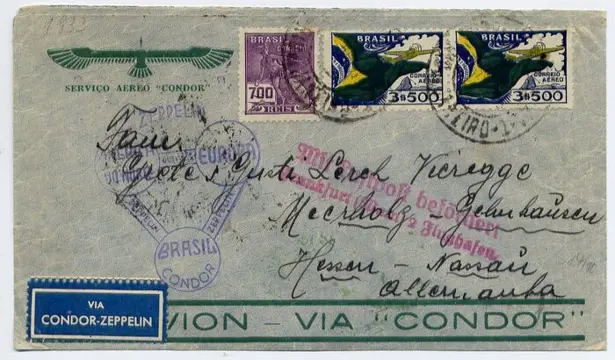 1933
SERVIÇO AEREO "CONDOR"
BRASIL CORREIO
700
REIS
BRASIL
CORREIO
AEREO
3$500
BRASIL
CORREIO
AEREO
3$500
ZEPPELIN
EUROPA
ZEPPELIN
ZEPPELIN
BRASIL
CONDOR
Mit Luftpost befördert
Frankfurt 2 Flughafen
Frau
Grete Gusti Lerch Vieregge
Meerholz-Gelnhausen
Hessen-Nassau
Allemanha
VIA
CONDOR-ZEPPELIN
VION - VIA "CONDOR"